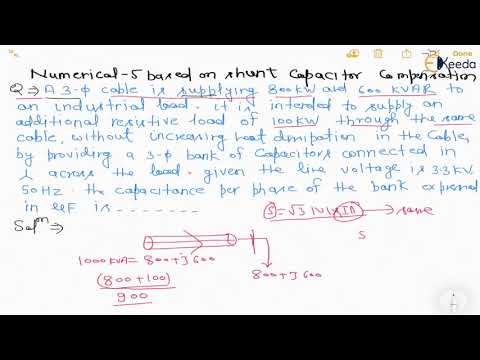 Done
EKeeda
Numerical-5 based on shunt Capacitor Compensation
Q ⇒ A 3-φ cable is supplying 800 kW and 600 KVAR to
an industrial load. it is intended to supply an
additional resistive load of 100 KW through the same
cable, without increasing heat dissipation in the Cable,
by providing a 3-φ bank of Capacitors connected in
λ across the load. given the line voltage is 3.3 KV.
50 Hz. the capacitance per phase of the bank expressed
in μF is - - - - - - -
Solⁿ ⇒
S = √3 |V| × |I| → same
S
1000 KVA = 800 + j 600
800 + j 600
(800 + 100)
900